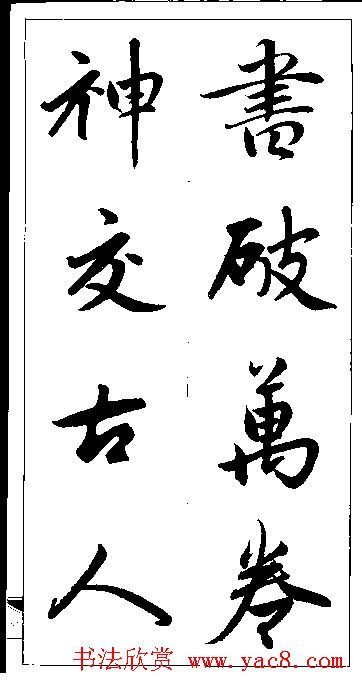 書破萬卷
神交古人
书法欣赏 www.yac8.com